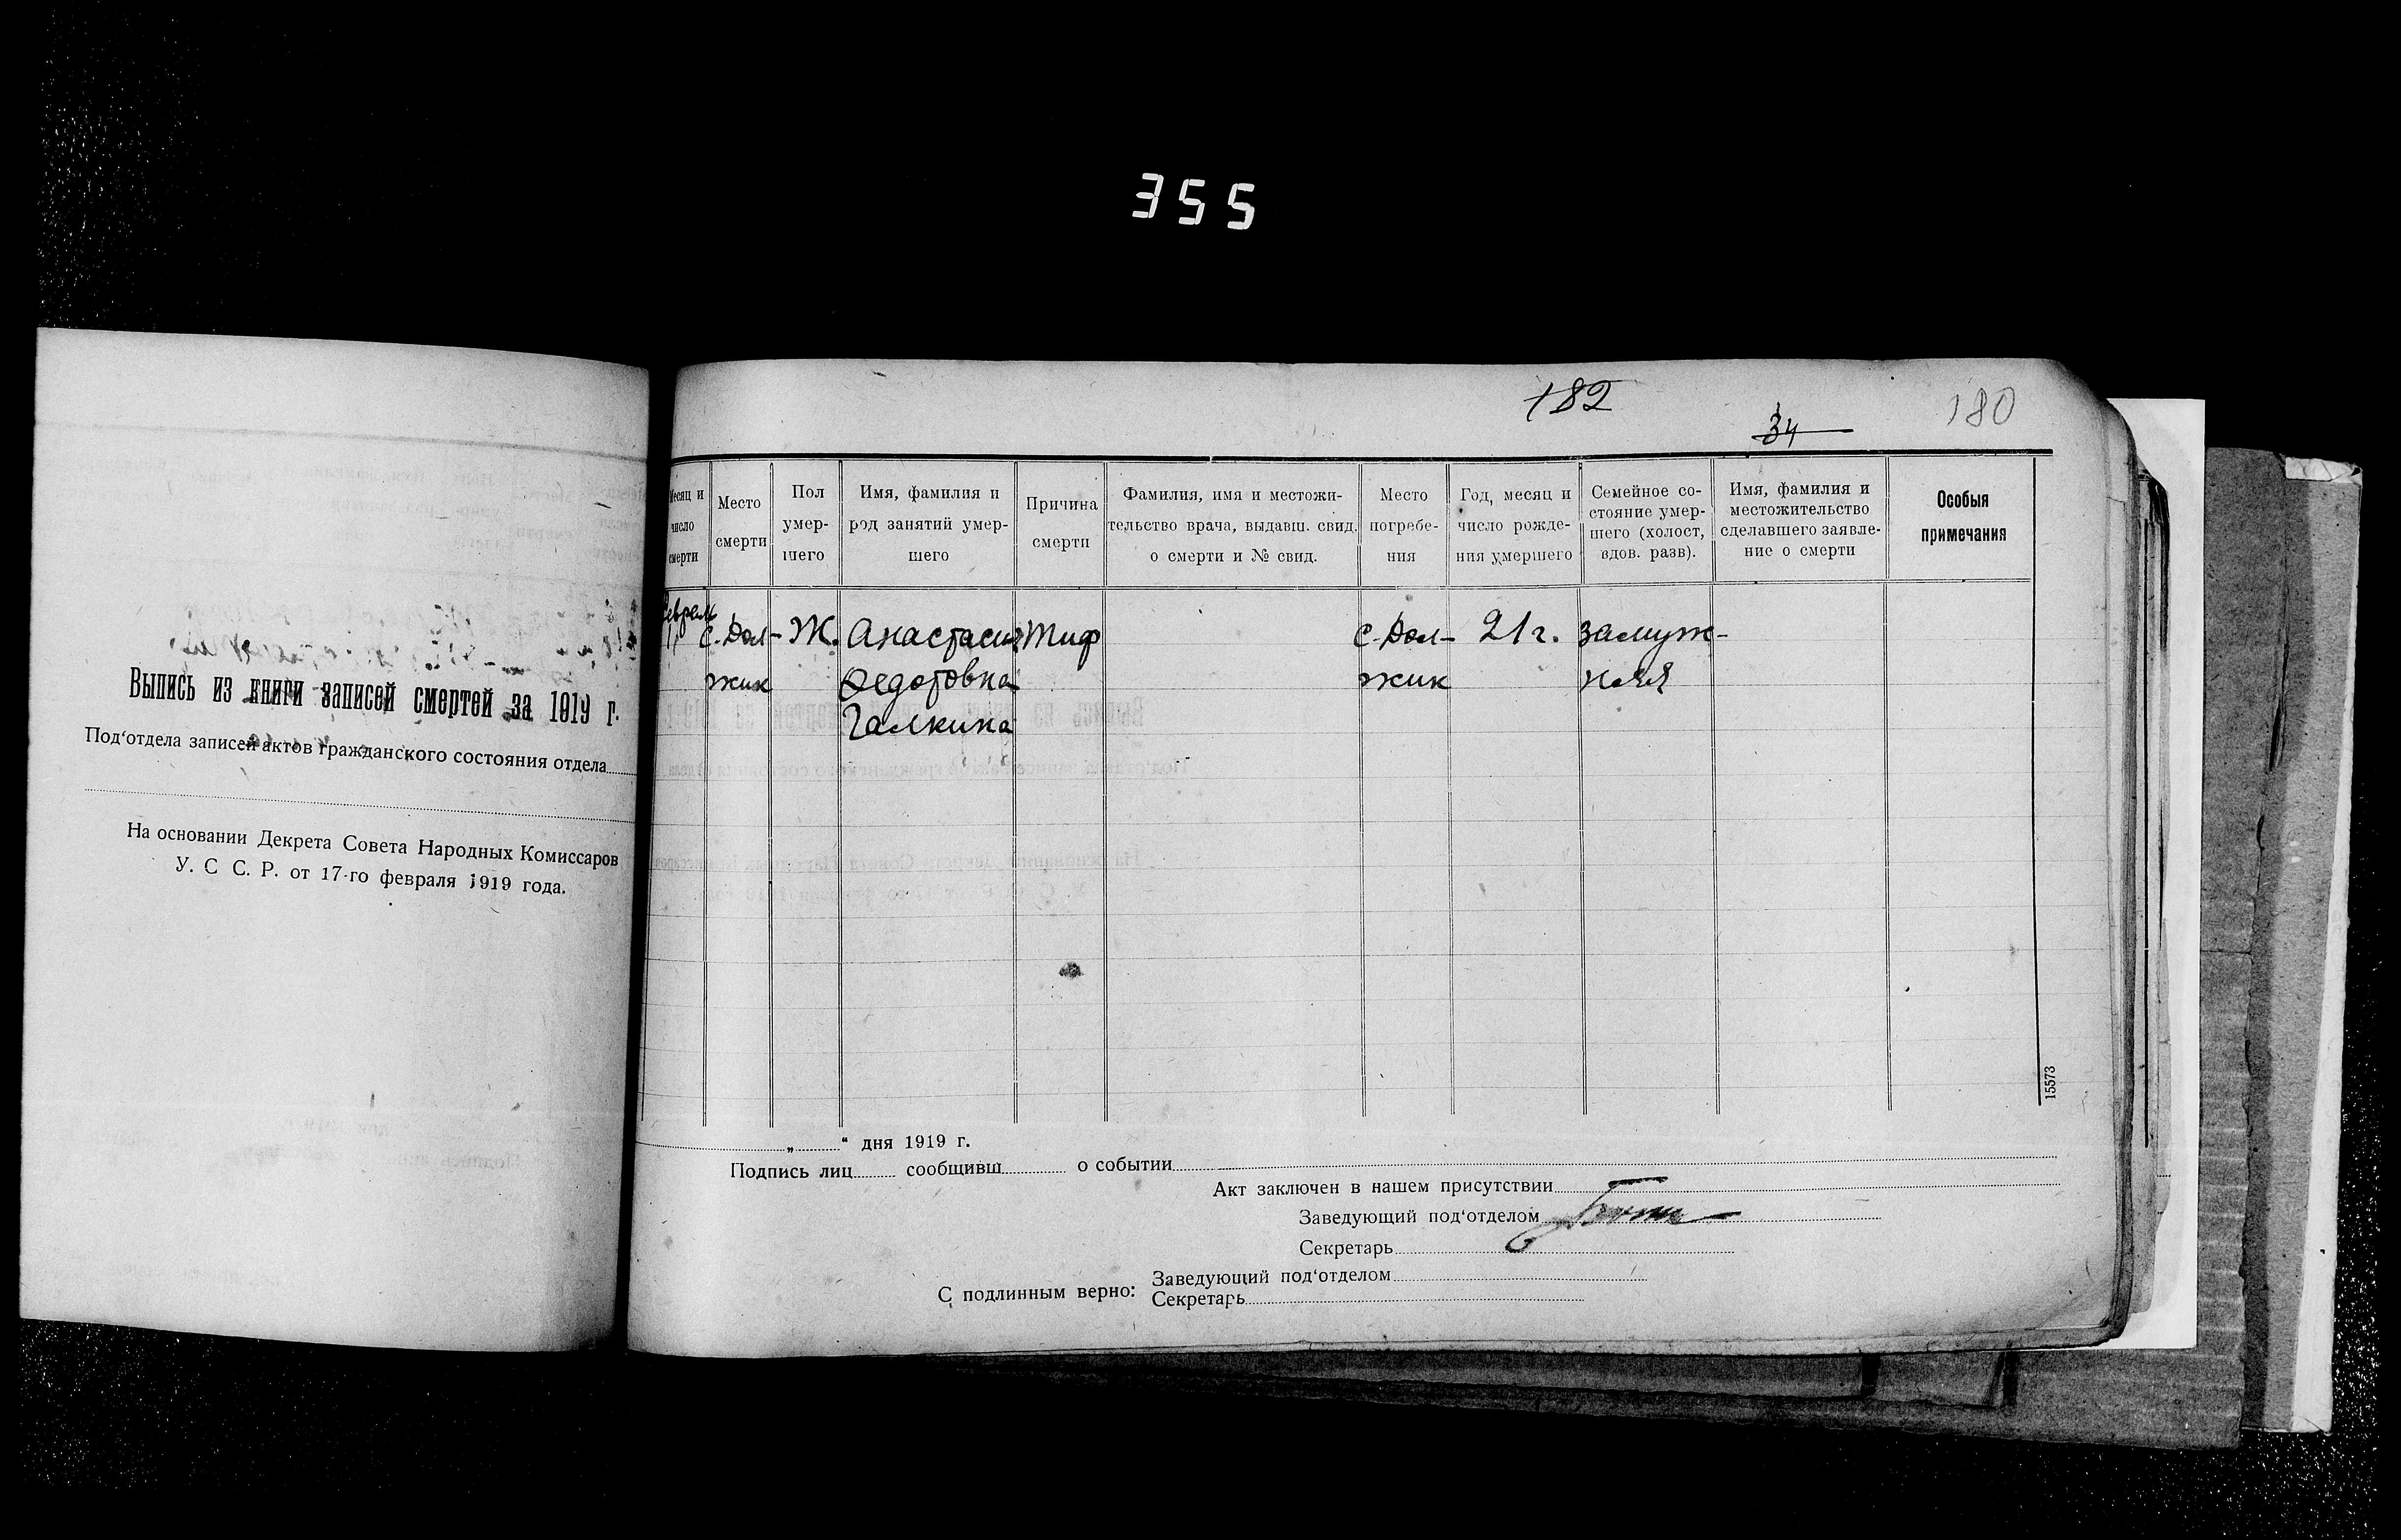 355
182
34
180
Выпись из книги записей смертей за 1919 г.
Под‘отдела записей актов гражданского состояния отдела
На основании Декрета Совета Народных Комиссаров
У. С С. Р. от 17-го февраля 1919 года.
Месяц и число смерти
Место смерти
Пол умер-
шего
Имя, фамилия и
род занятий умер-
шего
Причина
смерти
Фамилия, имя и местожи-
тельство врача, выдавш. свид.
о смерти и № свид.
Место
погребе-
ния
Год, месяц и
число рожде-
ния умершего
Семейное со-
стояние умер-
шего (холост,
вдов. разв).
Имя, фамилия и
местожительство
сделавшего заявле-
ние о смерти
Особыя
примечания
Февраль
11 с. Дол- Ж. Анастасия Тиф с. Дол- 21 г. замуж-
жик Федотовна жик няя
Галкина
15573
„ “ дня 1919 г.
Подпись лиц сообщивш о событии
Акт заключен в нашем присутствии
Заведующий под‘отделом
Секретарь
С подлинным верно:
Заведующий под‘отделом
Секретарь